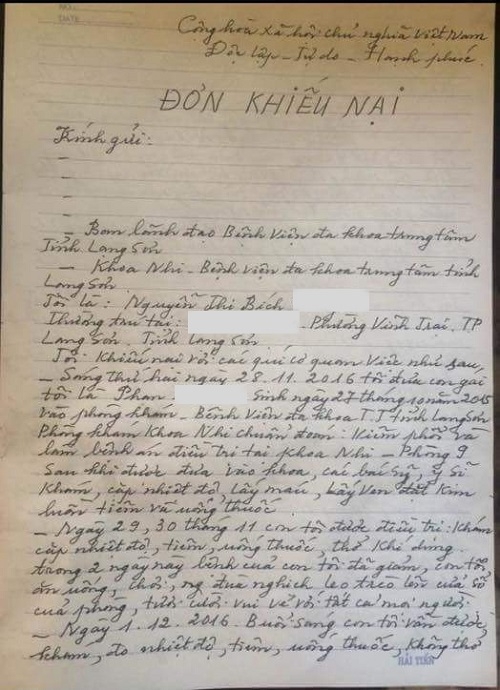 DATE
Cộng hòa xã hội chủ nghĩa Việt Nam
Độc lập - Tự do - Hạnh phúc
ĐƠN KHIẾU NẠI
Kính gửi:
-
-
-
-
- Ban lãnh đạo Bệnh Viện đa khoa trung tâm
Tỉnh Lạng Sơn
- Khoa Nhi - Bệnh viện đa khoa trung tâm tỉnh
Lạng Sơn
Tôi là: Nguyễn Thị Bích
Thường trú tại: - Phường Vĩnh Trại, TP
Lạng Sơn, Tỉnh Lạng Sơn
Tôi khiếu nại với các quí cơ quan việc như sau,
- Sáng thứ hai ngày 28.11.2016 tôi đưa con gái
tôi là Phan Sinh ngày 27 tháng 10 năm 2015
vào phòng khám - Bệnh Viện đa khoa T.T tỉnh Lạng Sơn
Phòng khám Khoa Nhi chuẩn đoán: Viêm phổi và
làm bệnh án điều trị tại Khoa Nhi - Phòng 9
Sau khi được đưa vào khoa, các bác sỹ, y sĩ
khám, cặp nhiệt độ, lấy máu, lấy ven đặt kim
luồn tiêm và uống thuốc.
- Ngày 29, 30 tháng 11 con tôi được điều trị: khám
cặp nhiệt độ, tiêm, uống thuốc, thở khí dung.
trong 2 ngày này bệnh của con tôi đã giảm, con tôi
ăn uống, chơi, nghịch leo trèo lên cửa sổ
của phòng, tươi cười vui vẻ với tất cả mọi người.
- Ngày 1.12.2016. Buổi sáng con tôi vẫn được
khám, đo nhiệt độ, tiêm, uống thuốc, không thở
HẢI TIẾN